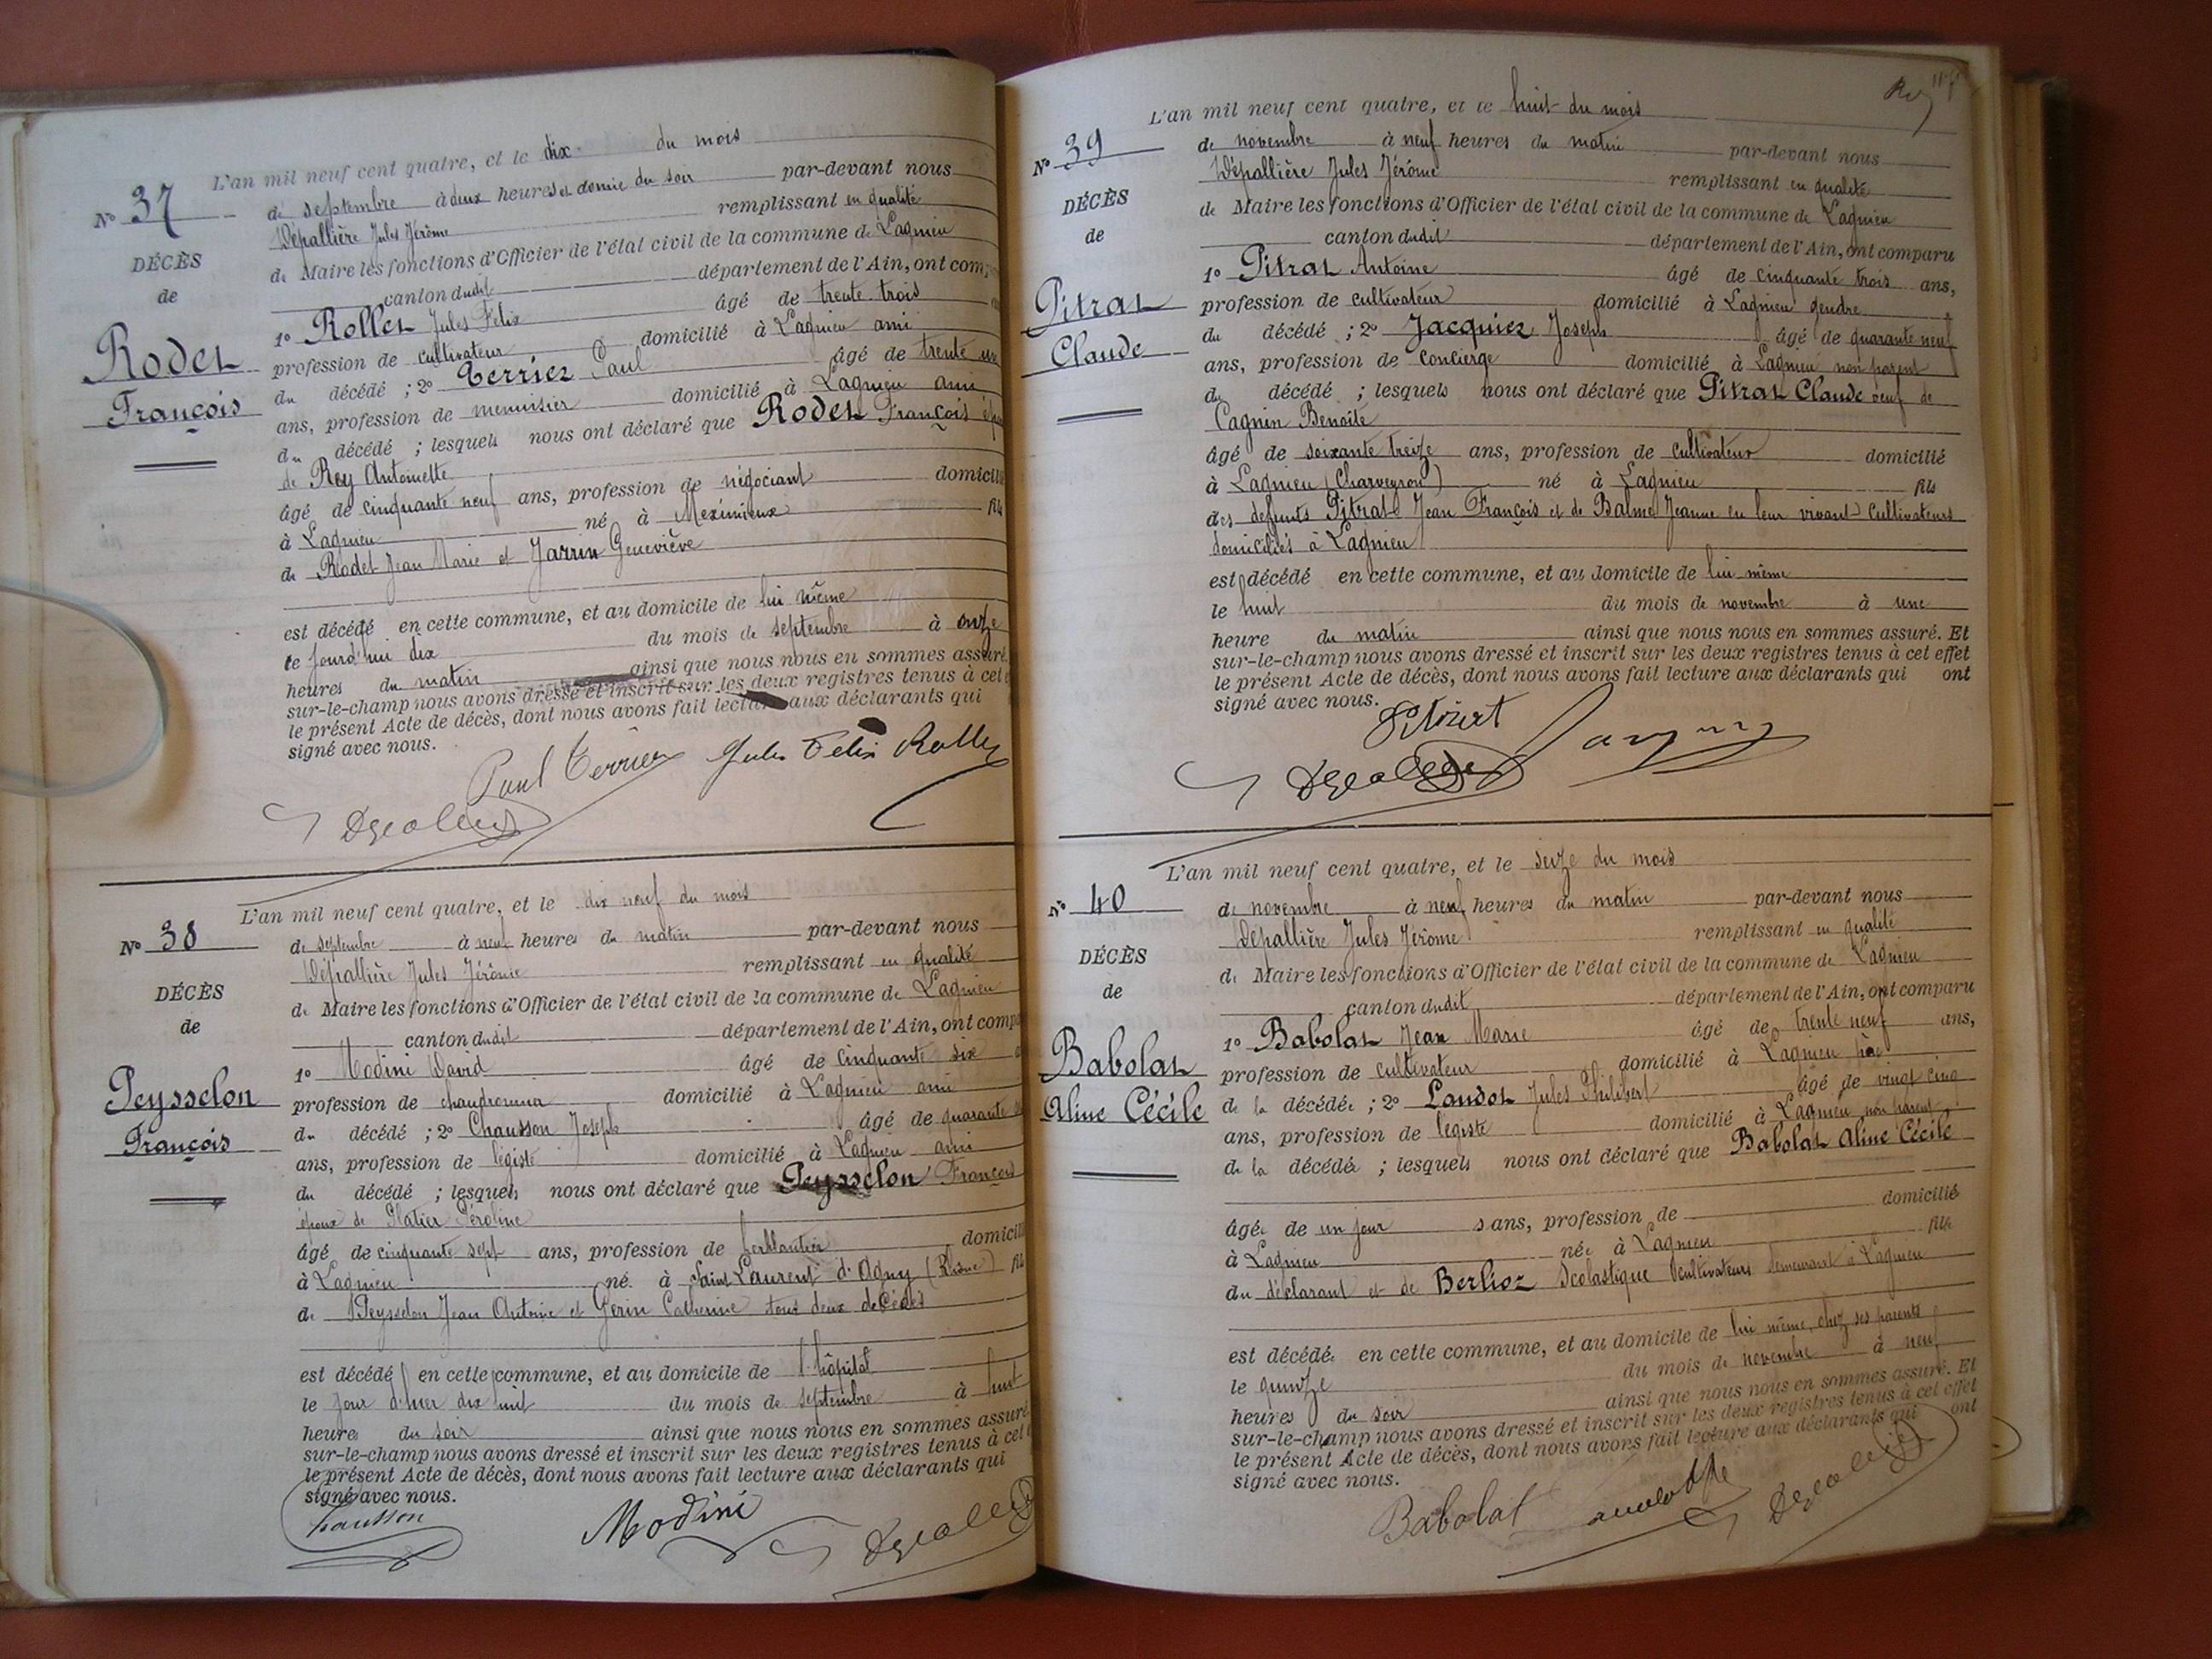 L'an mil neuf cent quatre, et le dix du mois
N° 37
de septembre à deux heures et demie du soir par-devant nous
Dépallière Jules Jérôme remplissant en qualité
DÉCÈS
de Maire les fonctions d'Officier de l'état civil de la commune de Lagnieu
de
canton dudit département de l'Ain, ont comp
Rodet
1° Rollet Jules Félix âgé de trente trois
François
profession de cultivateur domicilié à Lagnieu ami
du décédé ; 2° Terrier Paul âgé de trente un
ans, profession de menuisier domicilié à Lagnieu ami
du décédé ; lesquels nous ont déclaré que Rodet François
de Rey Antoinette
âgé de cinquante neuf ans, profession de négociant domicilié
à Lagnieu né à Meximieux fils
de Rodet Jean Marie et Jarrin Geneviève
est décédé en cette commune, et au domicile de lui même
le jourd'hui dix du mois de septembre à onze
heures du matin ainsi que nous nous en sommes assuré.
sur-le-champ nous avons dressé et inscrit sur les deux registres tenus à cet
le présent Acte de décès, dont nous avons fait lecture aux déclarants qui
signé avec nous.
Paul Terrier Jules Felix Rollet
L'an mil neuf cent quatre, et le dix neuf du mois
N° 38
de septembre à neuf heures du matin par-devant nous
Dépallière Jules Jérôme remplissant en qualité
DÉCÈS
de Maire les fonctions d'Officier de l'état civil de la commune de Lagnieu
de
canton dudit département de l'Ain, ont comp
Peysselon
1° Modini David âgé de cinquante six
François
profession de chaudronnier domicilié à Lagnieu ami
du décédé ; 2° Chausson Joseph âgé de quarante
ans, profession de légiste domicilié à Lagnieu ami
du décédé ; lesquels nous ont déclaré que Peysselon François
époux de Platier Péroline
âgé de cinquante sept ans, profession de ferblantier domicilié
à Lagnieu né à Saint Laurent d'Agny (Rhône) fils
de Peysselon Jean Antoine et Gerin Catherine tous deux décédés
est décédé en cette commune, et au domicile de l'hôpital
le jour d'hier dix huit du mois de septembre à huit
heures du soir ainsi que nous nous en sommes assuré.
sur-le-champ nous avons dressé et inscrit sur les deux registres tenus à cet
le présent Acte de décès, dont nous avons fait lecture aux déclarants qui
signé avec nous.
Chausson Modini
L'an mil neuf cent quatre, et le huit du mois
N° 39
de novembre à neuf heures du matin par-devant nous
Dépallière Jules Jérôme remplissant en qualité
DÉCÈS
de Maire les fonctions d'Officier de l'état civil de la commune de Lagnieu
de
canton dudit département de l'Ain, ont comparu
Pitrat
1° Pitrat Antoine âgé de cinquante trois ans,
Claude
profession de cultivateur domicilié à Lagnieu gendre
du décédé ; 2° Jacquier Joseph âgé de quarante neuf
ans, profession de concierge domicilié à Lagnieu non parent
du décédé ; lesquels nous ont déclaré que Pitrat Claude veuf de
Cagnin Benoite
âgé de soixante treize ans, profession de cultivateur domicilié
à Lagnieu (Charveyron) né à Lagnieu fils
des défunts Pitrat Jean François et de Balme Jeanne en leur vivant cultivateurs
domiciliés à Lagnieu
est décédé en cette commune, et au domicile de lui même
le huit du mois de novembre à une
heure du matin ainsi que nous nous en sommes assuré. Et
sur-le-champ nous avons dressé et inscrit sur les deux registres tenus à cet effet
le présent Acte de décès, dont nous avons fait lecture aux déclarants qui ont
signé avec nous.
L'an mil neuf cent quatre, et le seize du mois
N° 40
de novembre à neuf heures du matin par-devant nous
Dépallière Jules Jérome remplissant en qualité
DÉCÈS
de Maire les fonctions d'Officier de l'état civil de la commune de Lagnieu
de
canton dudit département de l'Ain, ont comparu
Babolat
1° Babolat Jean Marie âgé de trente neuf ans,
Aline Cécile
profession de cultivateur domicilié à Lagnieu père
de la décédée ; 2° Landot Jules Philibert âgé de vingt cinq
ans, profession de légiste domicilié à Lagnieu non parent
de la décédée ; lesquels nous ont déclaré que Babolat Aline Cécile
âgée de un jour s ans, profession de domicilié
à Lagnieu née à Lagnieu fille
du déclarant et de Berlioz Scolastique cultivateurs demeurant à Lagnieu
est décédée en cette commune, et au domicile de lui même, chez ses parents
le quinze du mois de novembre à neuf
heures du soir ainsi que nous nous en sommes assuré. Et
sur-le-champ nous avons dressé et inscrit sur les deux registres tenus à cet effet
le présent Acte de décès, dont nous avons fait lecture aux déclarants qui ont
signé avec nous.
Babolat